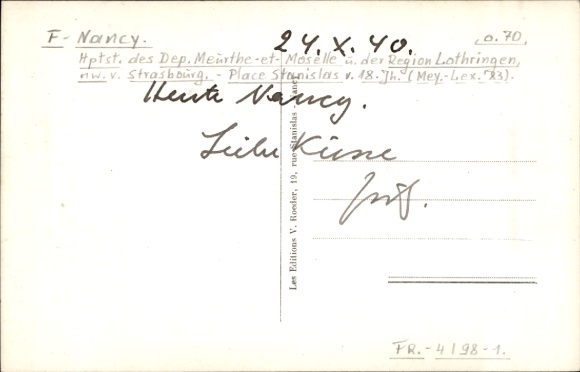 F - Nancy. 24. X. 40. o.70,
Hptst. des Dep. Meurthe-et-Moselle u. der Region Lothringen,
nw. v. Strasbourg. - Place Stanislas v. 18. Jh. (Mey.-Lex. '83).
Heute Nancy.
Liebe Küsse
Les Editions V. Roesler, 19, rue Stanislas - Nancy
FR. - 4198-1.